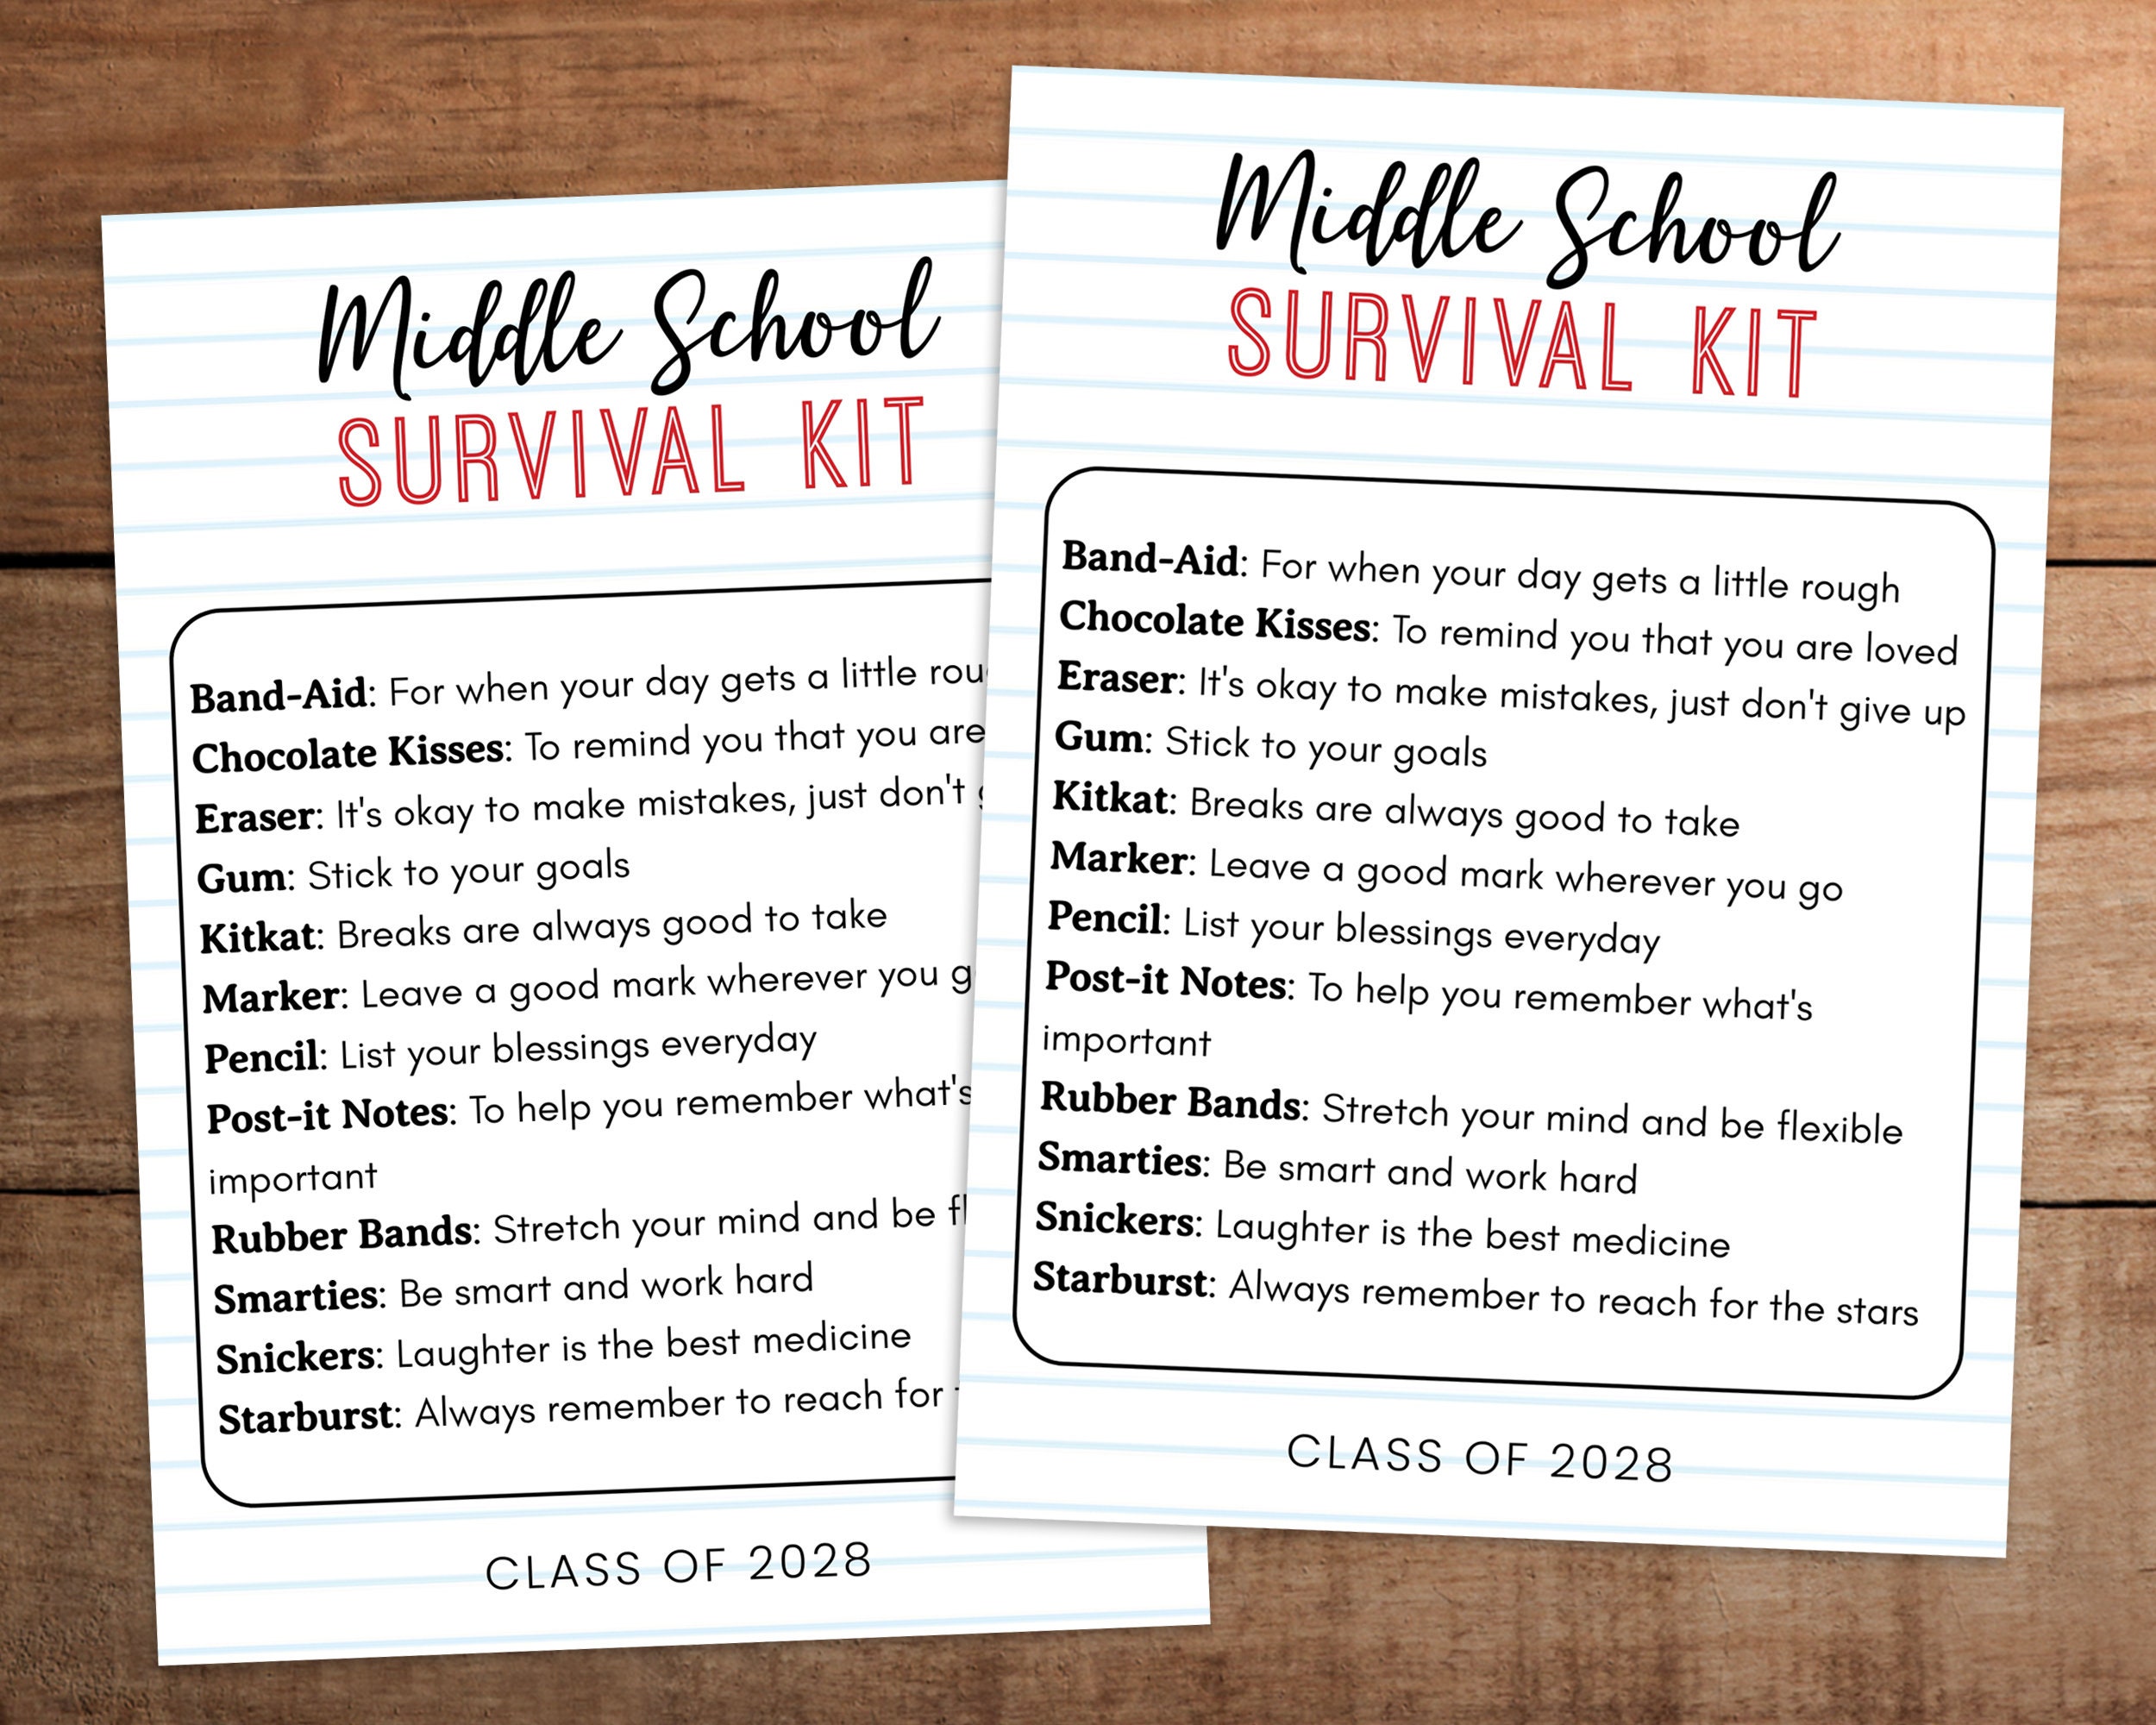 Middle School
SURVIVAL KIT
Band-Aid: For when your day gets a little
Chocolate Kisses: To remind you that you are
Eraser: It's okay to make mistakes, just don't
Gum: Stick to your goals
Kitkat: Breaks are always good to take
Marker: Leave a good mark wherever you
Pencil: List your blessings everyday
Post-it Notes: To help you remember what's
important
Rubber Bands: Stretch your mind and be
Smarties: Be smart and work hard
Snickers: Laughter is the best medicine
Starburst: Always remember to reach for
CLASS OF 2028
Middle School
SURVIVAL KIT
Band-Aid: For when your day gets a little rough
Chocolate Kisses: To remind you that you are loved
Eraser: It's okay to make mistakes, just don't give up
Gum: Stick to your goals
Kitkat: Breaks are always good to take
Marker: Leave a good mark wherever you go
Pencil: List your blessings everyday
Post-it Notes: To help you remember what's
important
Rubber Bands: Stretch your mind and be flexible
Smarties: Be smart and work hard
Snickers: Laughter is the best medicine
Starburst: Always remember to reach for the stars
CLASS OF 2028